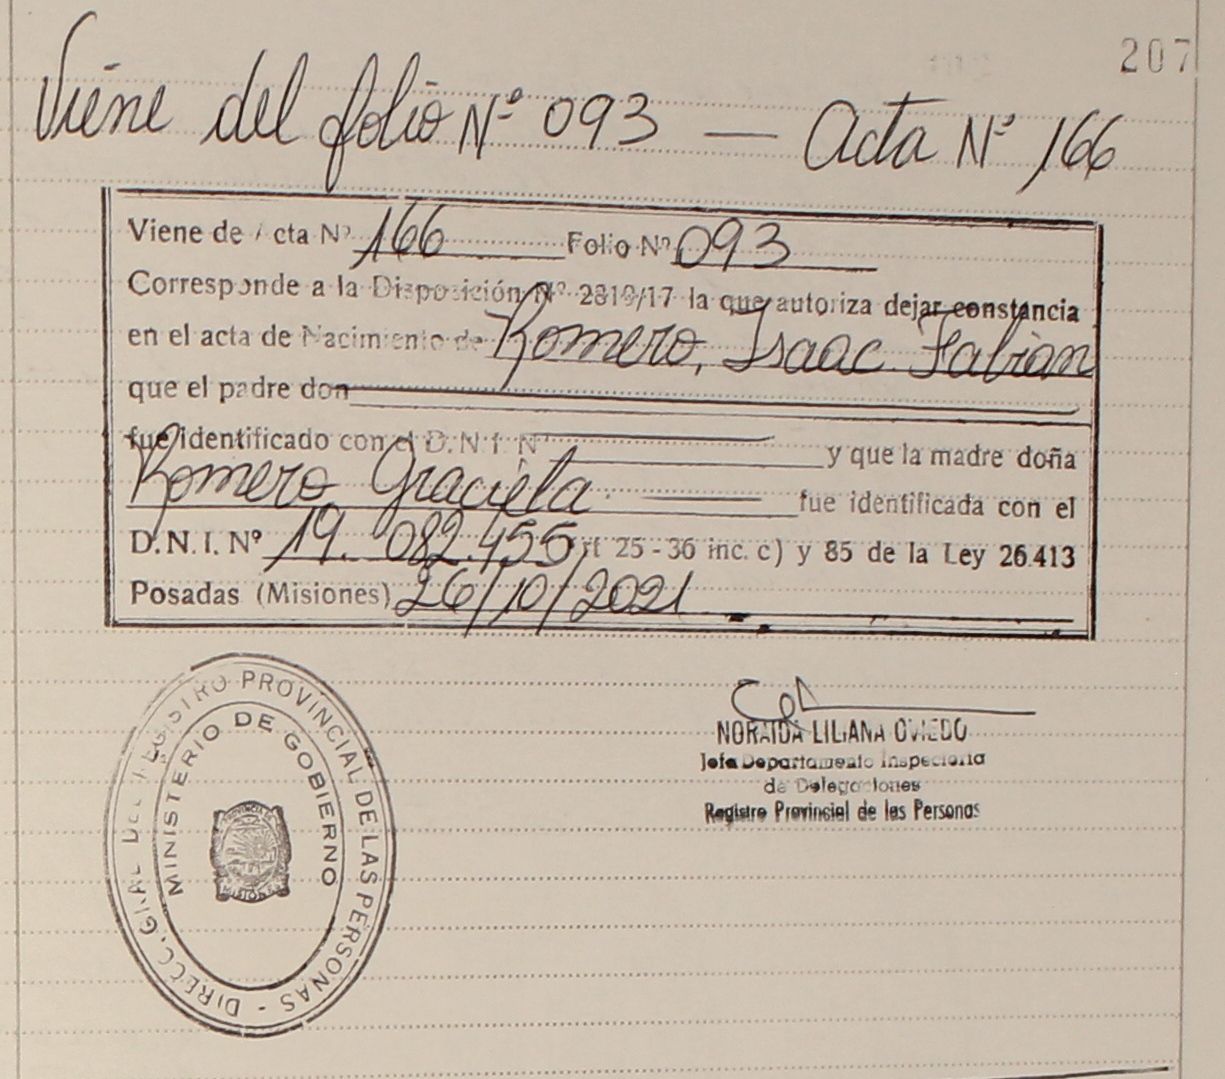 207
Viene del folio Nº 093 — Acta Nº 166
Viene de Acta Nº 166 Folio Nº 093
Corresponde a la Disposición Nº 2819/17 la que autoriza dejar constancia
en el acta de Nacimiento de Romero, Isaac Fabian
que el padre don
fue identificado con el D.N.I. Nº y que la madre doña
Romero Graciela. fue identificada con el
D.N.I. Nº 19.082.455 (Art 25 - 36 inc. c) y 85 de la Ley 26.413
Posadas (Misiones) 26/10/2021
DIRECC. GRAL DEL REGISTRO PROVINCIAL DE LAS PERSONAS -
MINISTERIO DE GOBIERNO
PROVINCIA DE
MISIONES
NORAIDA LILIANA OVIEDO
Jefa Departamento Inspectoria
de Delegaciones
Registro Provincial de las Personas